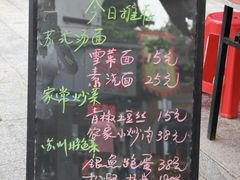 今日推荐
苏式汤面
雪菜面 15元
素浇面 25元
家常炒菜
青椒土豆丝 15元
农家小炒肉 38元
苏州特色菜
银鱼炖蛋 38元